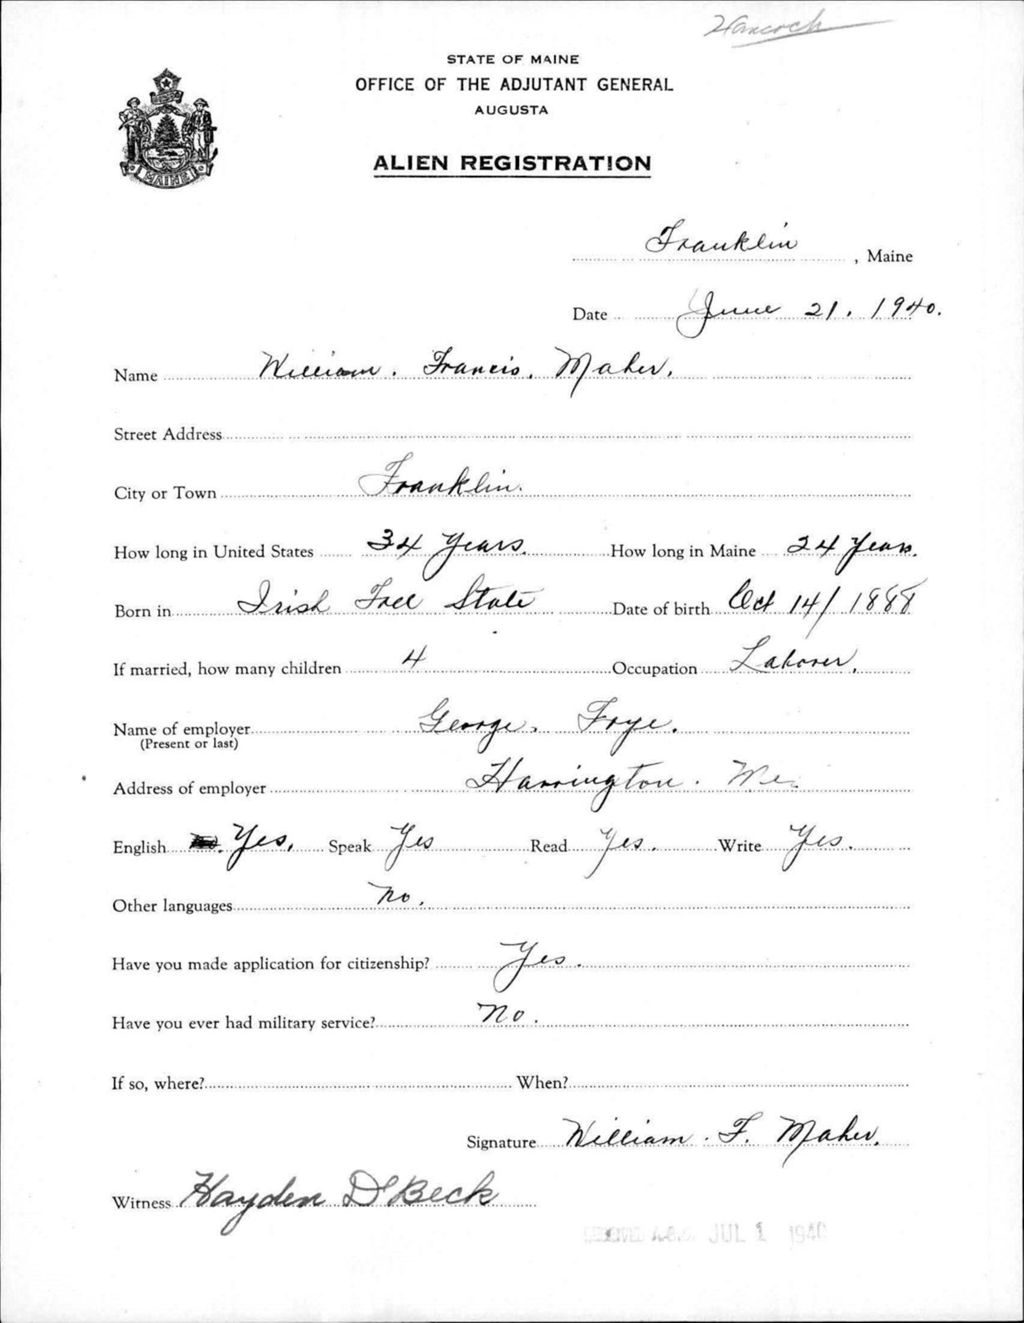 Hancock
STATE OF MAINE
OFFICE OF THE ADJUTANT GENERAL
AUGUSTA
MAINE
ALIEN REGISTRATION
Franklin, Maine
Date June 21. 1940.
Name William. Francis. Maher.
Street Address
City or Town Franklin.
How long in United States 34 Years. How long in Maine 24 Years.
Born in Irish Free State Date of birth Oct 14/ 1888
If married, how many children 4 Occupation Laborer.
Name of employer George. Frye.
(Present or last)
Address of employer Harrington. Me.
English Yes. Speak Yes Read Yes. Write Yes.
Other languages No.
Have you made application for citizenship? Yes.
Have you ever had military service? No.
If so, where? When?
Signature William. F. Maher.
Witness Hayden D Beck
RECEIVED A.G.O. JUL 1 1940